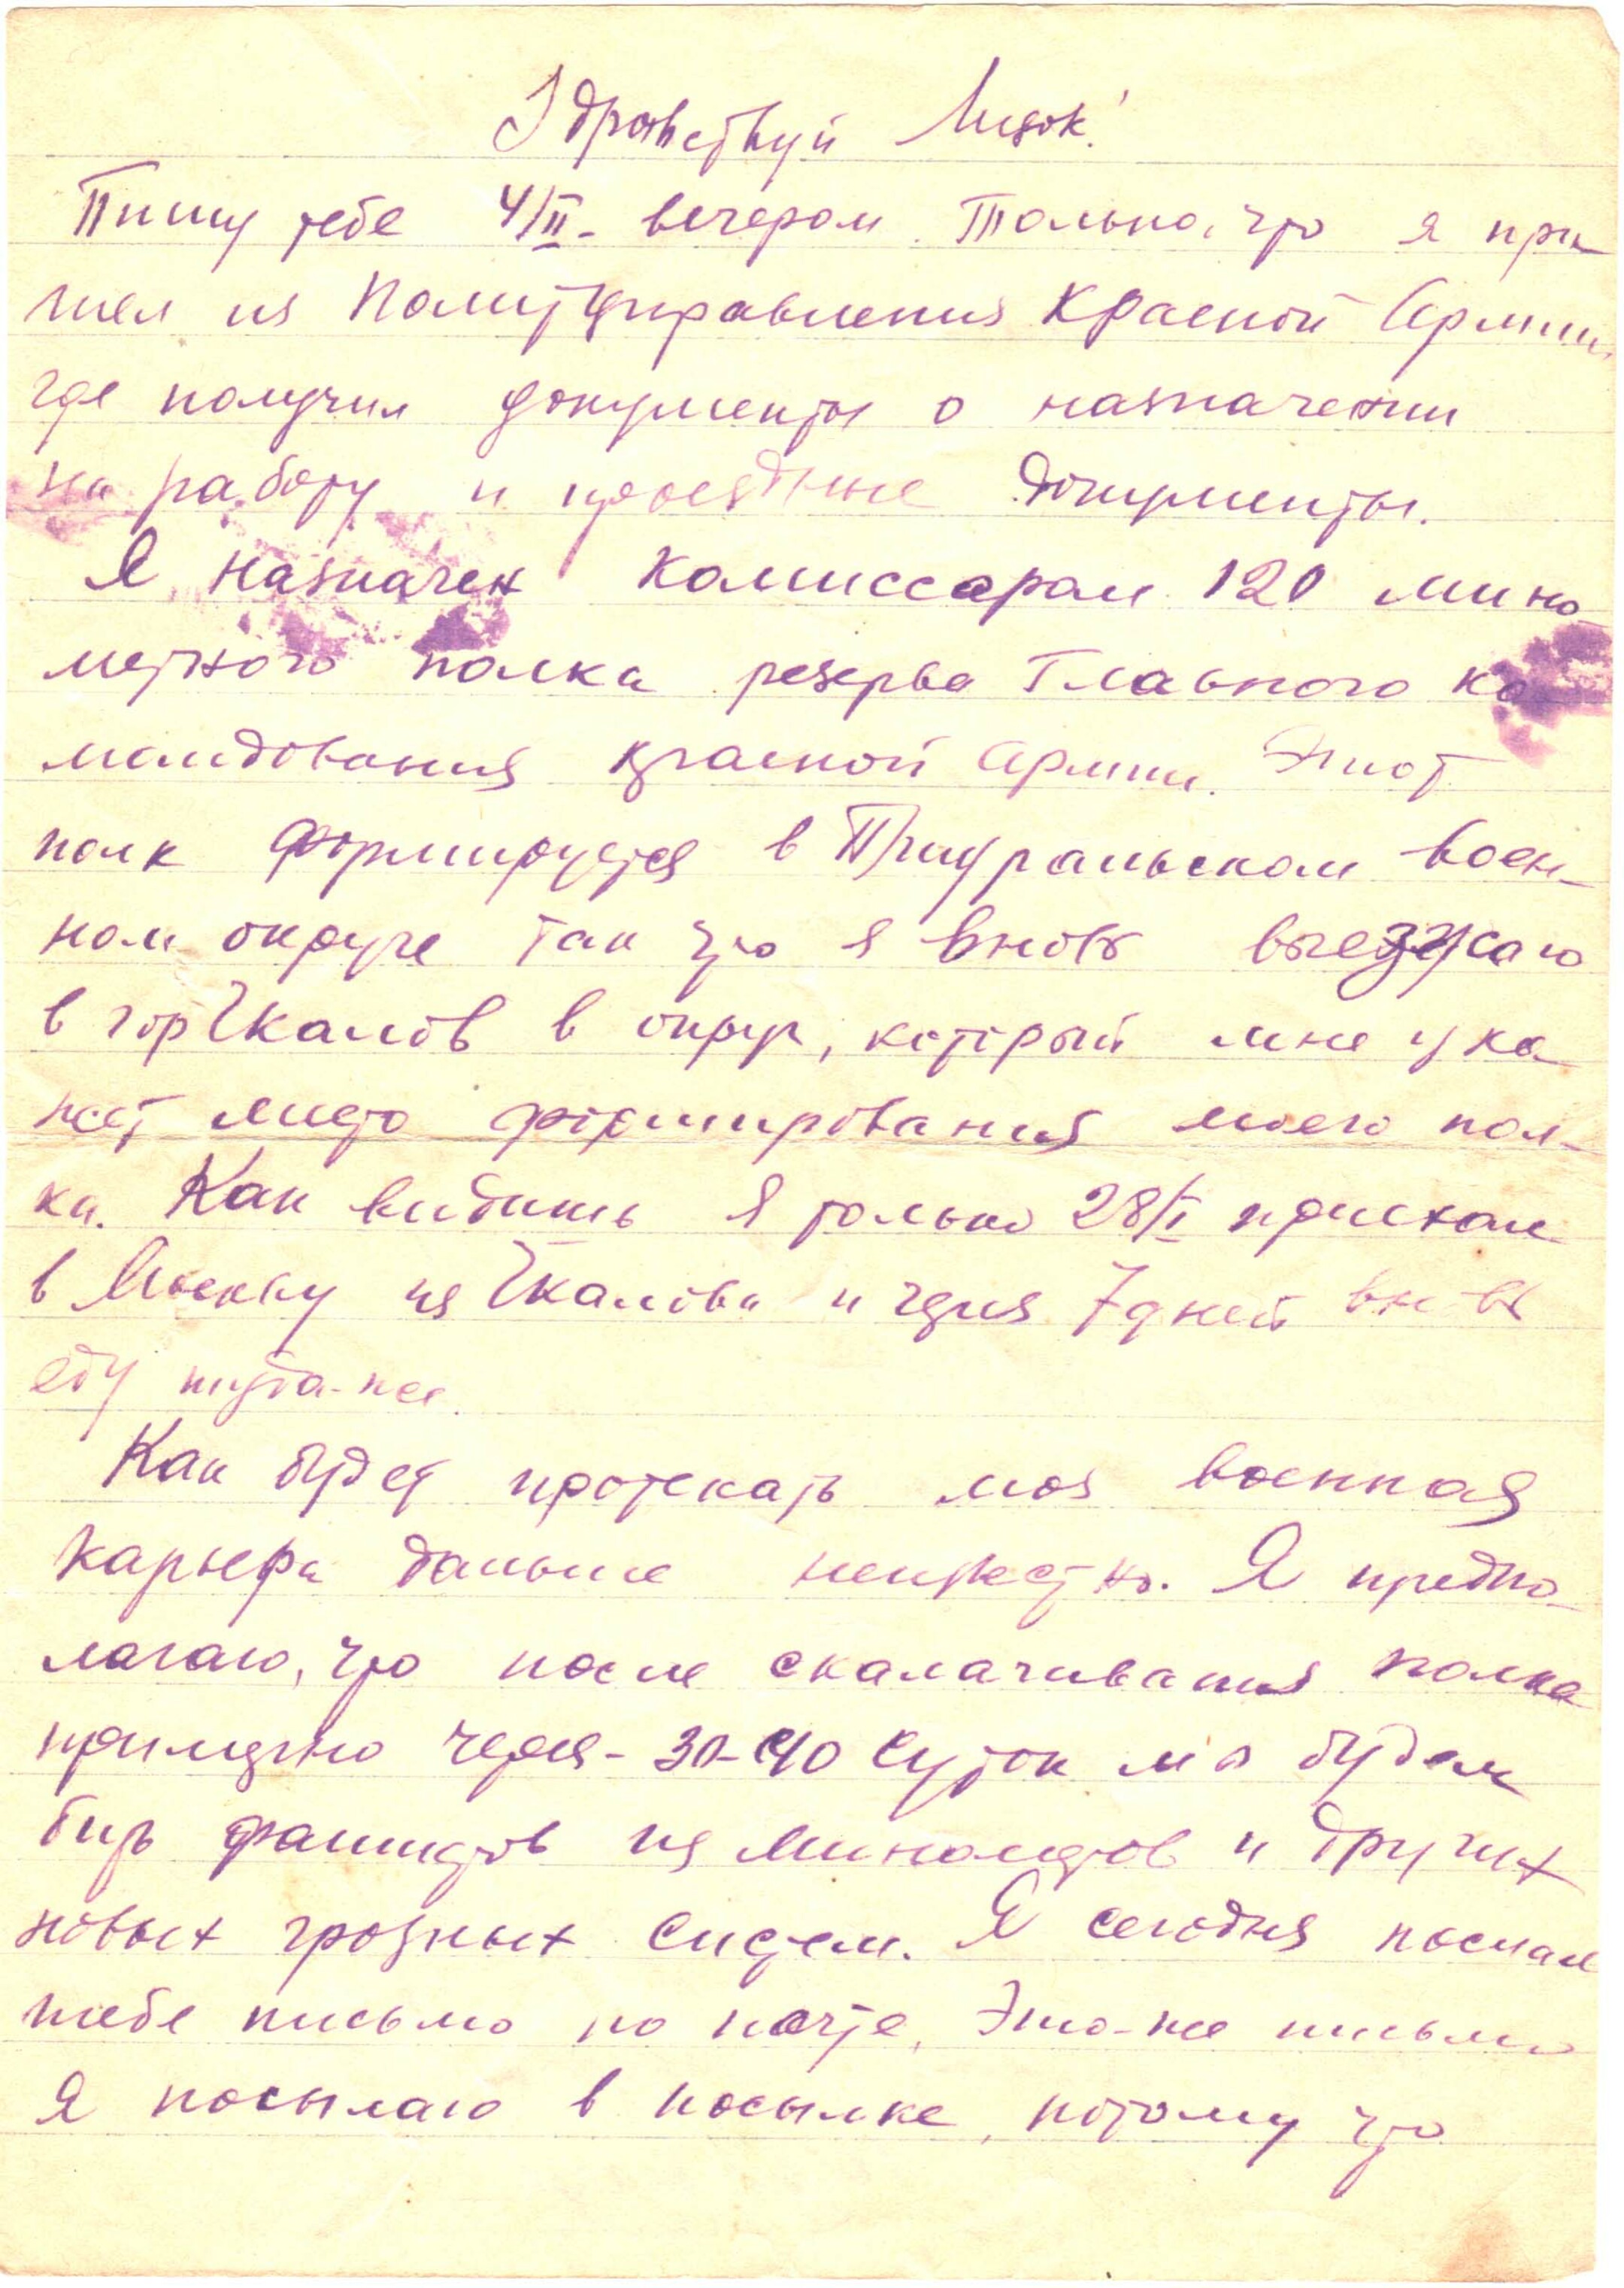 Здравствуй Лидок!
Пишу тебе 4/II - вечером. Только, что я при
шел из ПолитУправления Красной Армии,
где получил документы о назначении
на работу и проездные документы.
Я назначен комиссаром 120 мино
метного полка резерва Главного ко
мандования красной Армии. Этот
полк формируется в Приуральском воен-
ном округе так что я вновь выезжаю
в гор Чкалов в округ, который мне ука
жет место формирования моего пол-
ка. Как видишь я только 28/I приехал
в Москву из Чкалова и через 7 дней вновь
еду туда-же.
Как будет протекать моя военная
карьера дальше неизвестно. Я предпо-
лагаю, что после сколачивания полка
примерно через - 30-40 суток мы будем
бить фашистов из минометов и других
новых грозных систем. Я сегодня послал
тебе письмо по почте, Это-же письмо
я посылаю в посылке, потому что